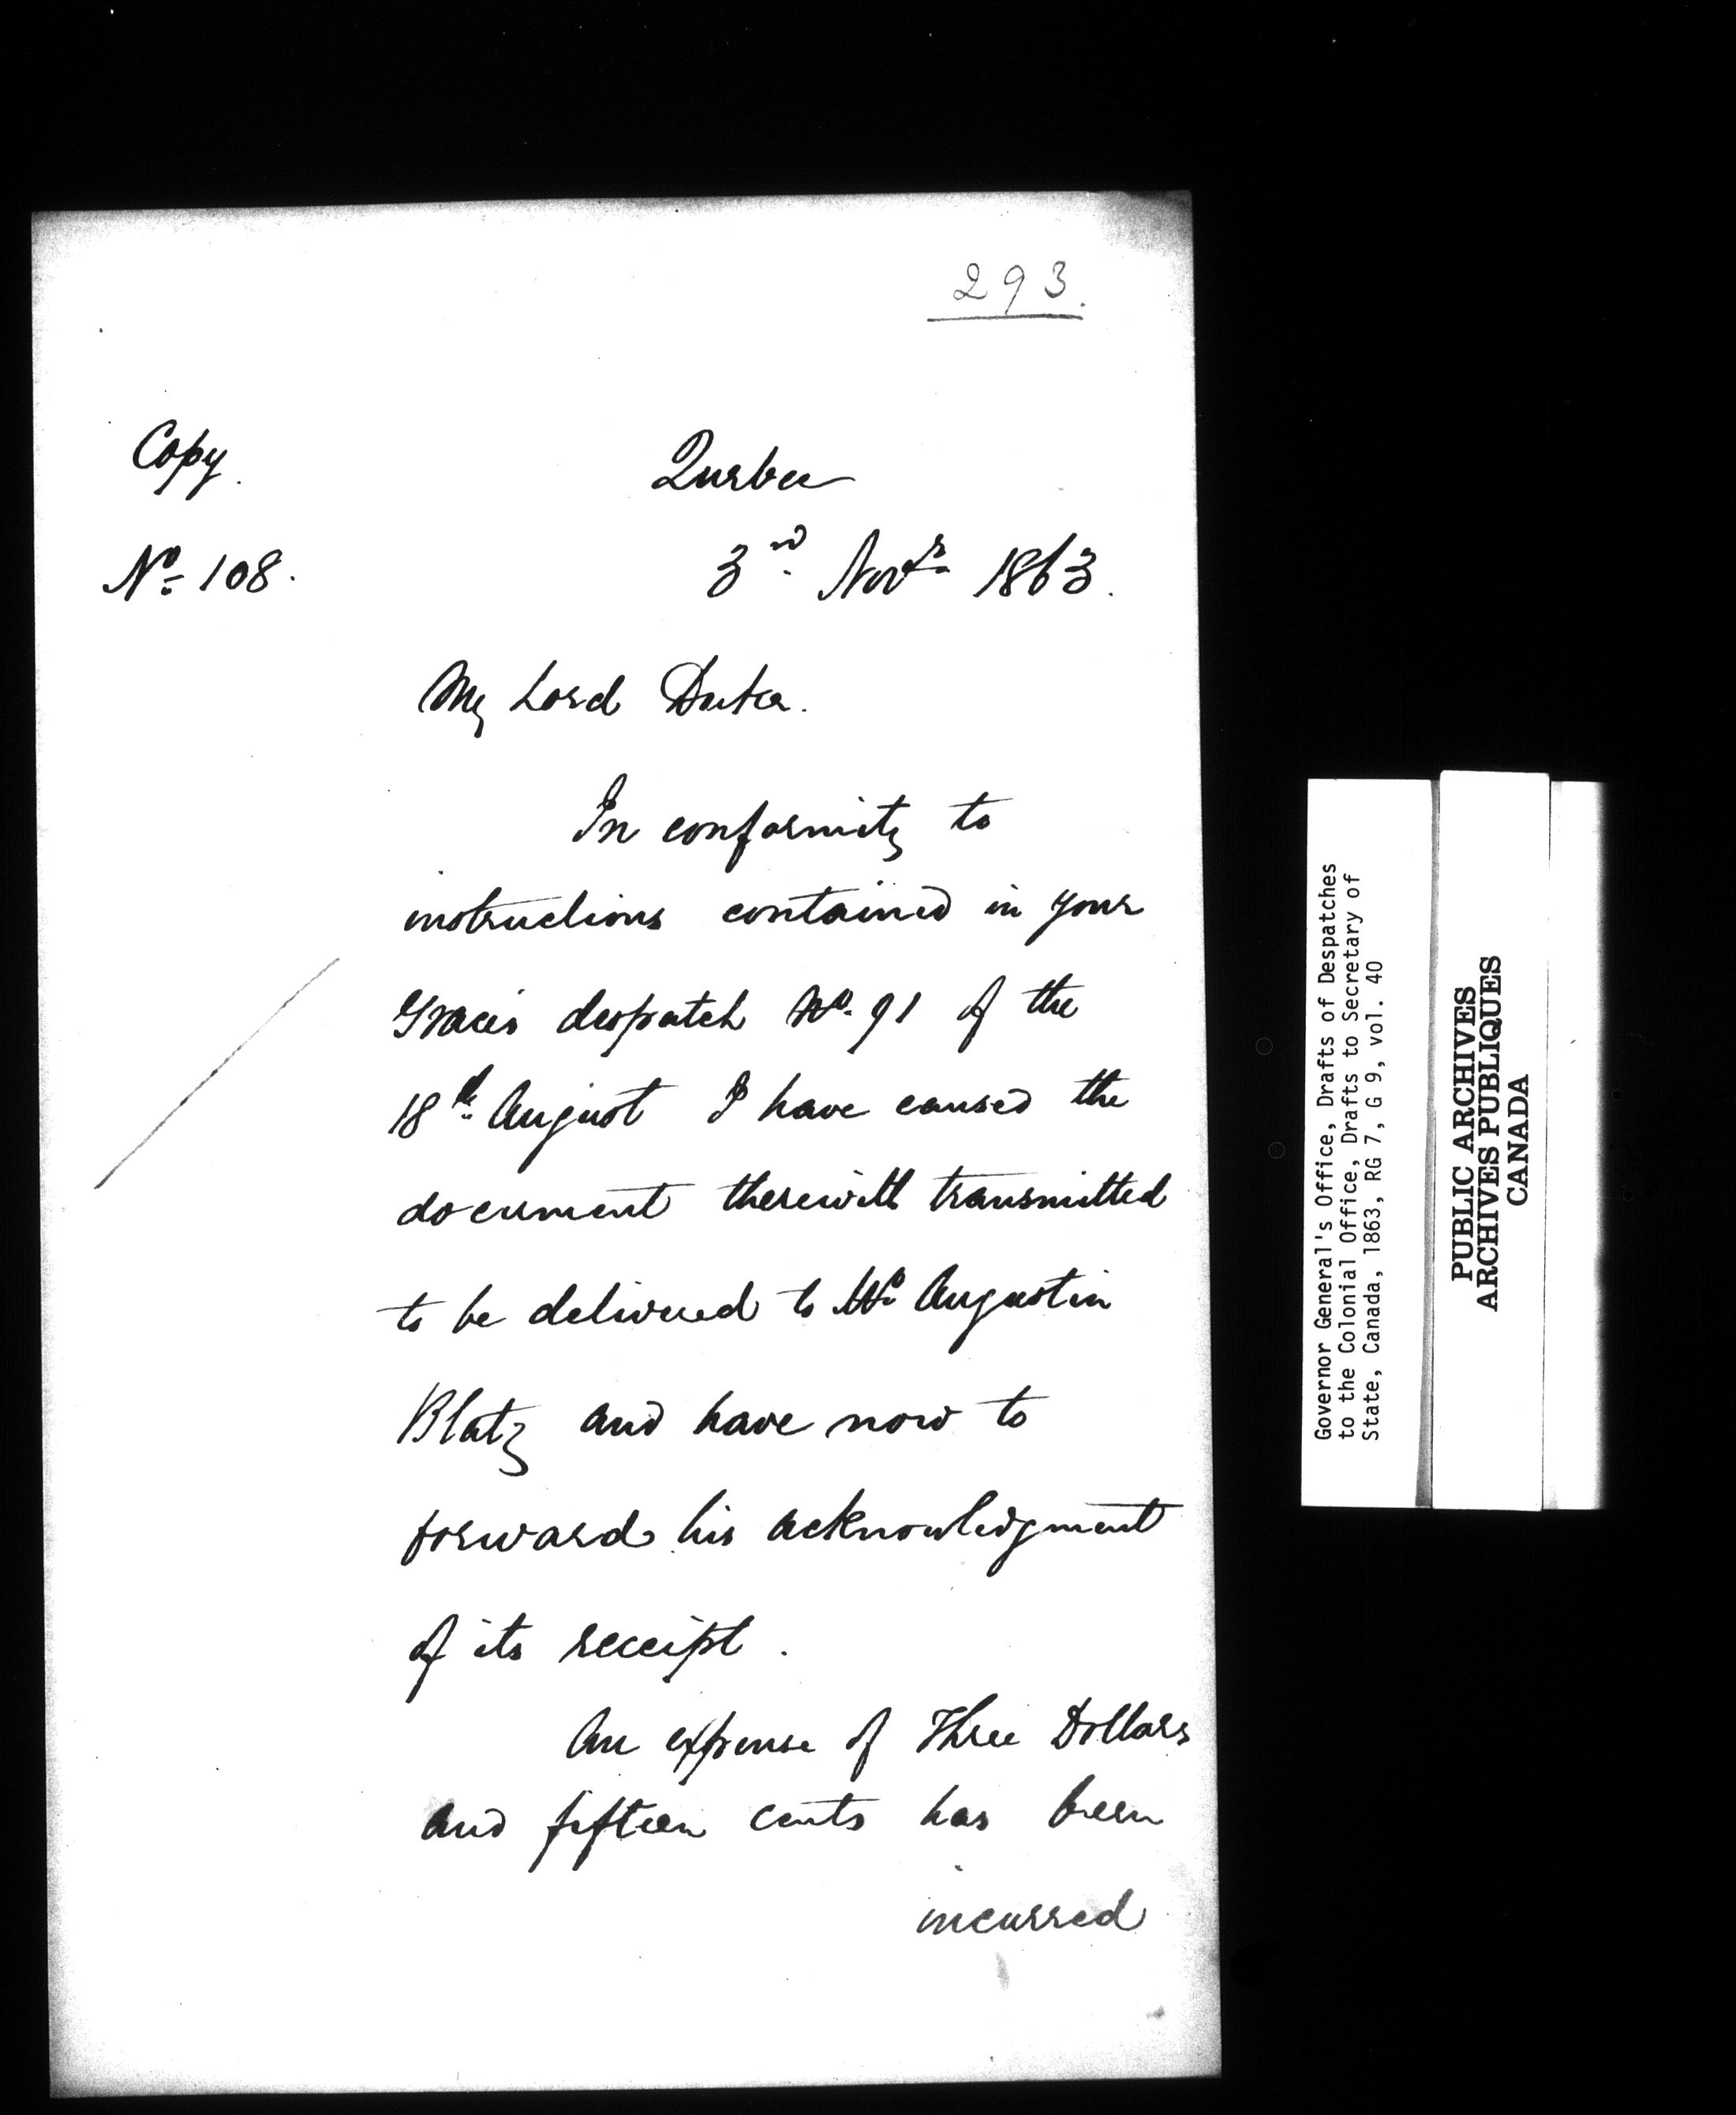 293.
Copy.
Quebec
No. 108.
3rd Novr. 1863.
My Lord Duke.
In conformity to
instructions contained in your
Grace's despatch No. 91 of the
18th August I have caused the
document therewith transmitted
to be delivered to Mr Augustin
Blatz and have now to
forward his acknowledgment
of its receipt.
An expense of Three Dollars
and fifteen cents has been
incurred
Governor General's Office, Drafts of Despatches
to the Colonial Office, Drafts to Secretary of
State, Canada, 1863, RG 7, G 9, vol. 40
PUBLIC ARCHIVES
ARCHIVES PUBLIQUES
CANADA